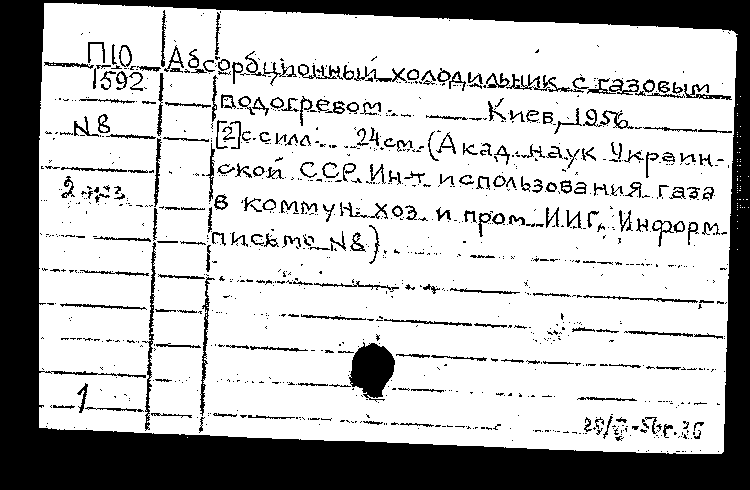 П10
1592
N8
2 экз
Абсорбционный холодильник с газовым
подогревом. Киев, 1956
[2]с с илл. 24см. (Акад. наук Украин-
ской ССР. Ин-т использования газа
в коммун. хоз. и пром. ИИГ. Информ.
письмо N8).
1